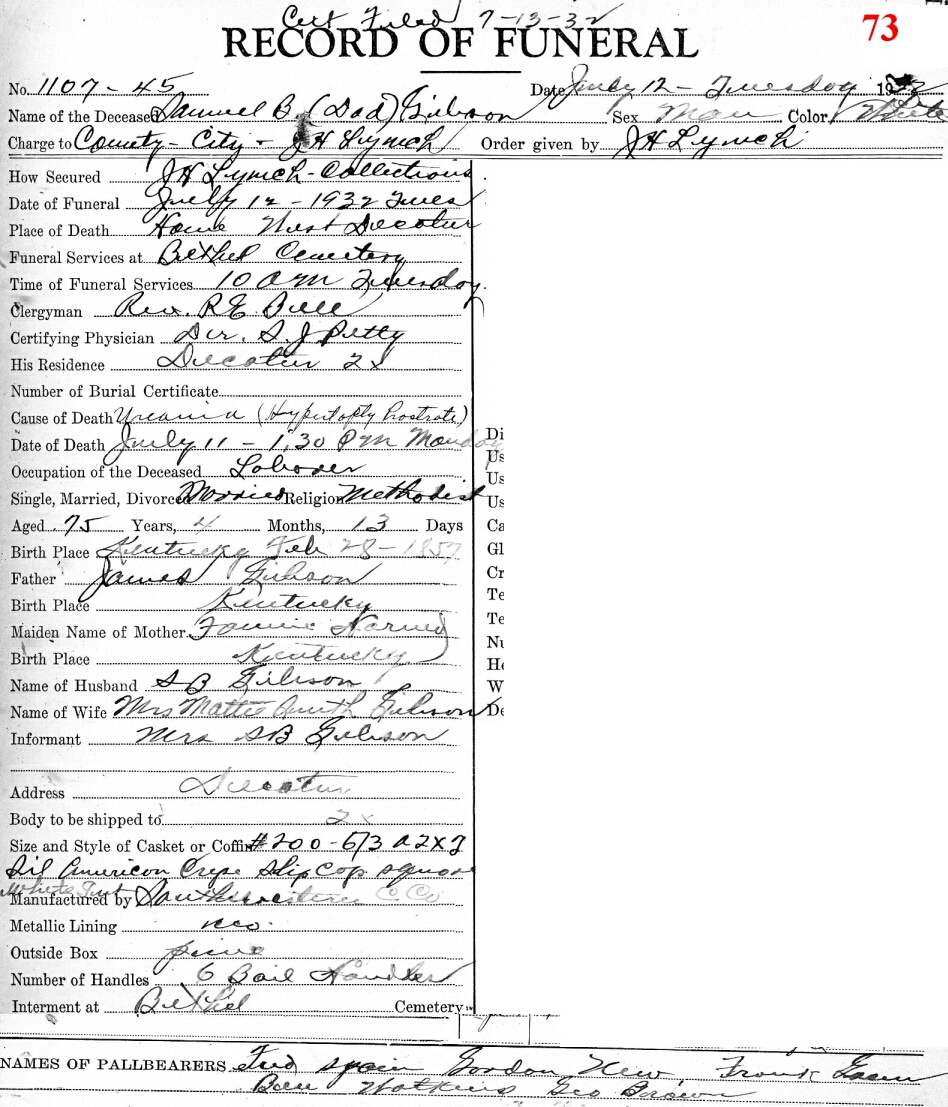 Cert Filed 7-13-32
73
RECORD OF FUNERAL
No. 1107-45 Date July 12- Tuesday 1932
Name of the Deceased Samuel B. (Dad) Gibson Sex Man Color White
Charge to County-City- JH Lynch Order given by JH Lynch
How Secured JH Lynch-Collections
Date of Funeral July 12-1932 Tues
Place of Death Home West Decatur
Funeral Services at Bethel Cemetery
Time of Funeral Services 10 AM Tuesday.
Clergyman Rev. RE
Certifying Physician Dr. S.J Petty
His Residence Decatur 2x
Number of Burial Certificate
Cause of Death Uremia (Hypertophy Prostrate)
Date of Death July 11-1;30 PM Monday
Occupation of the Deceased Laborer
Single, Married, Divorced Married Religion Methodist
Aged 75 Years, 4 Months, 13 Days
Birth Place Kentucky Feb 28-1857
Father James Gibson
Birth Place Kentucky
Maiden Name of Mother Fannie
Birth Place Kentucky
Name of Husband SB Gibson
Name of Wife Mrs Mattie Gibson
Informant Mrs SB Gibson
Address Decatur
Body to be shipped to 2x
Size and Style of Casket or Coffin #200-6/3 A2X
Sil American Crepe Slip Cap square
White Int
Manufactured by Southwestern C. Co
Metallic Lining no.
Outside Box pine
Number of Handles 6 Bail Handles
Interment at Bethel Cemetery
Di
Us
Us
Us
Ca
Gl
Cr
Te
Te
Nu
He
W
De
NAMES OF PALLBEARERS Fred Spain Gordon New, Frank
Ben Watkins Geo Brown